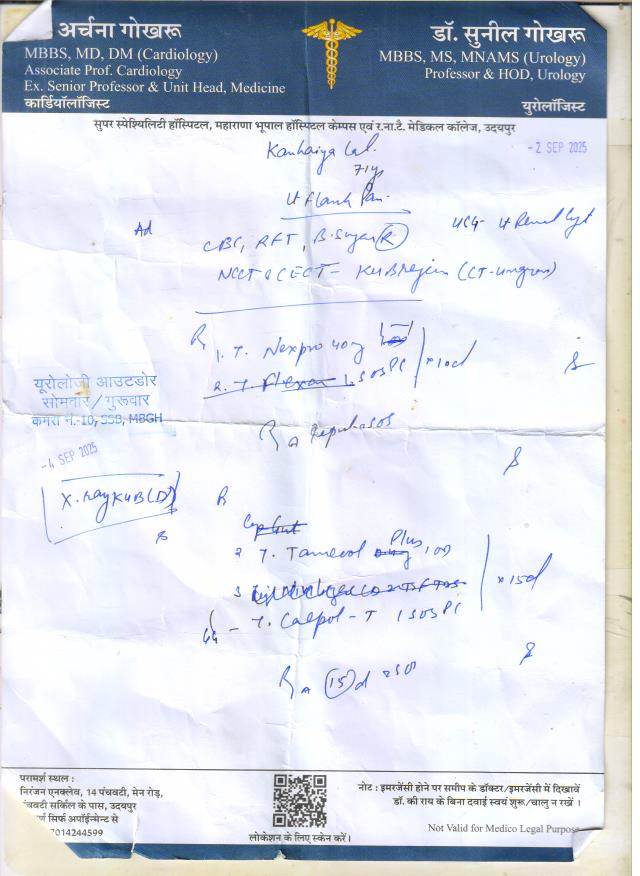 अर्चना गोखरू
MBBS, MD, DM (Cardiology)
Associate Prof. Cardiology
Ex. Senior Professor & Unit Head, Medicine
कार्डियॉलॉजिस्ट
डॉ. सुनील गोखरू
MBBS, MS, MNAMS (Urology)
Professor & HOD, Urology
युरोलॉजिस्ट
सुपर स्पेश्यिलिटी हॉस्पिटल, महाराणा भूपाल हॉस्पिटल केम्पस एवं र.ना.टै. मेडिकल कॉलेज, उदयपुर
- 2 SEP 2025
Kanhaiya Lal.
71y
Lt Flank Pain.
Ad
CBC, RFT, B. Sugar (R)
USG - Lt Renal Cyst
NCCT & CECT - KUB region (CT-urogram)
R 1. T. Nexpro 40mg
2. T. Flexon 1 SOS PC
x 10d
यूरोलोजी आउटडोर
सोमवार / गुरूवार
कमरा नं.-10, SSB, MBGH
- 4 SEP 2025
X. Ray KUB (D)
R
2 T. Tamecol Plus 1 OD
3
T. Calpol-T 1 SOS PC
x 15d
(15) d
परामर्श स्थल :
निरंजन एनक्लेव, 14 पंचवटी, मेन रोड़,
पंचवटी सर्किल के पास, उदयपुर
सिर्फ अपॉईन्मेण्ट से
7014244599
लोकेशन के लिए स्केन करें।
नोट : इमरजेंसी होने पर समीप के डॉक्टर/इमरजेंसी में दिखावें
डॉ. की राय के बिना दवाई स्वयं शुरू/चालु न रखें ।
Not Valid for Medico Legal Purpose